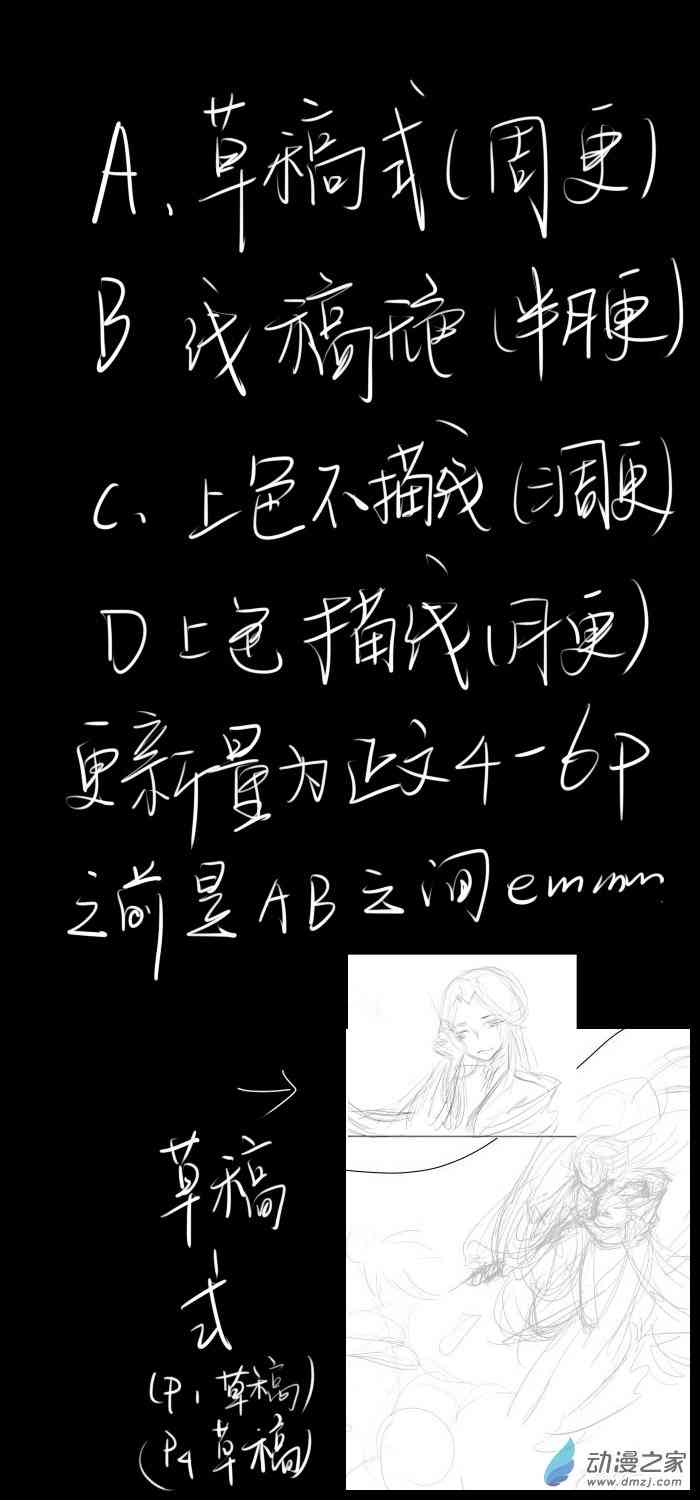 A、草稿式(周更)
B 线稿无色(半月更)
C、上色不描线(三周更)
D 上色描线(月更)
更新量为正文4-6P
之前是AB之间emmm
→
草稿
式
(P1草稿)
(P4草稿)
动漫之家
www.dmzj.com